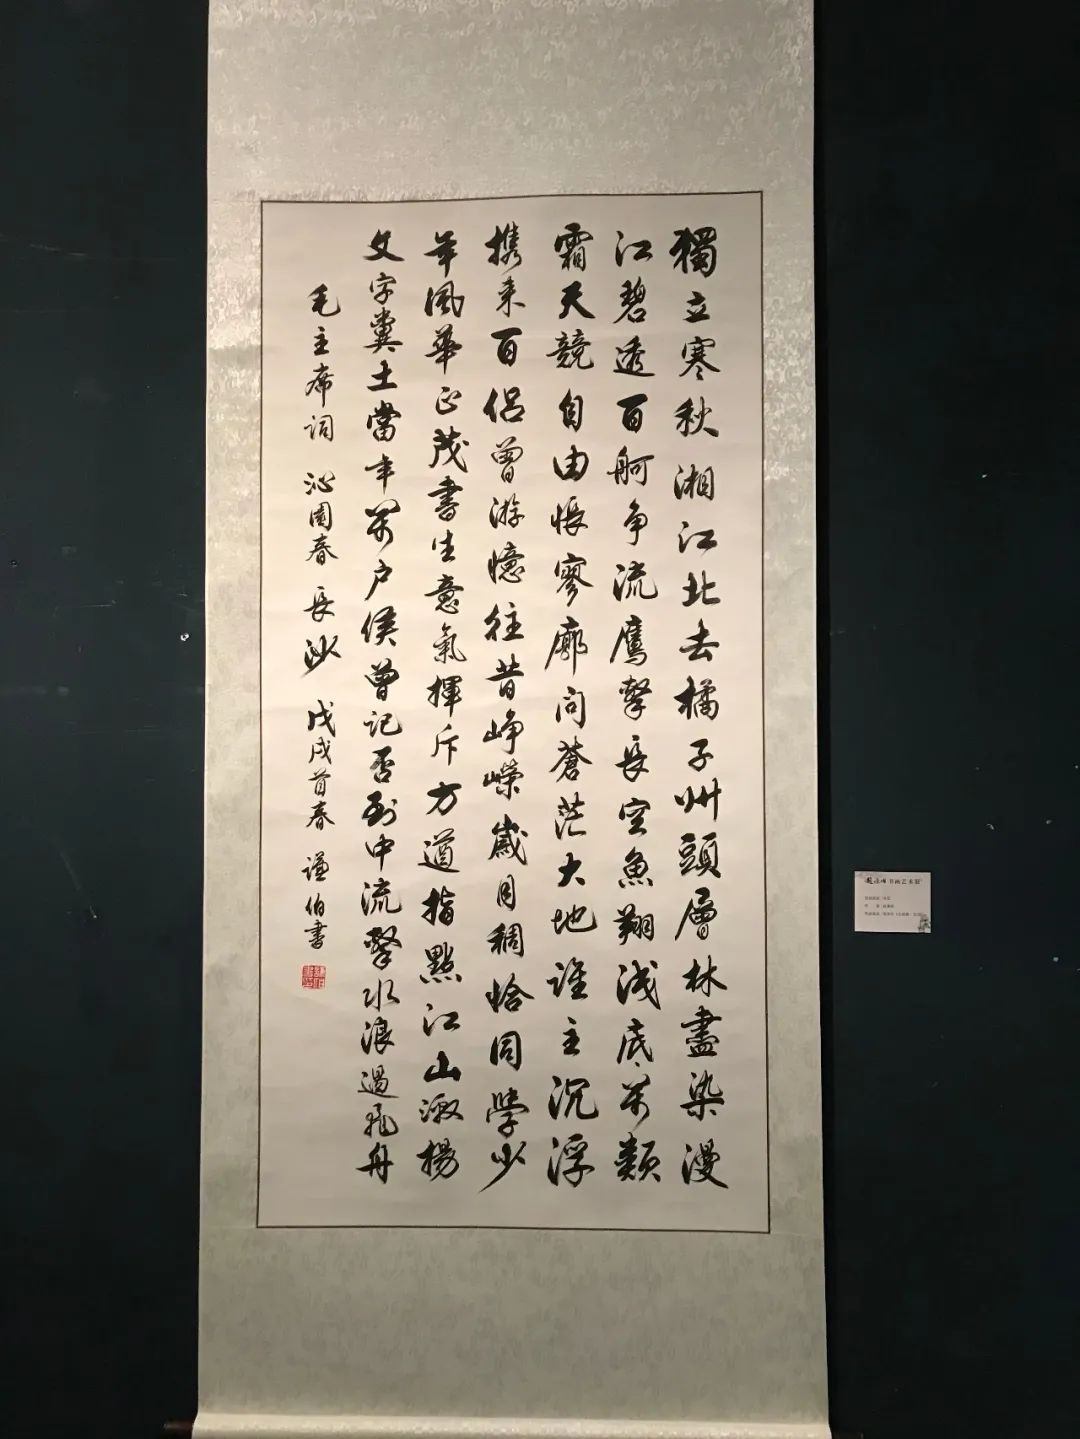 獨立寒秋湘江北去橘子州頭層林盡染漫
江碧透百舸争流鷹擊長空魚翔淺底萬類
霜天競自由悵寥廓問蒼茫大地誰主沉浮
携来百侣曾游憶往昔崢嶸歲月稠恰同學少
年風華正茂書生意氣揮斥方遒指點江山激揚
文字糞土當年萬户侯曾記否到中流擊水浪遏飛舟
毛主席词 沁園春 長沙 戊戌首春 谦伯書
书画艺术展